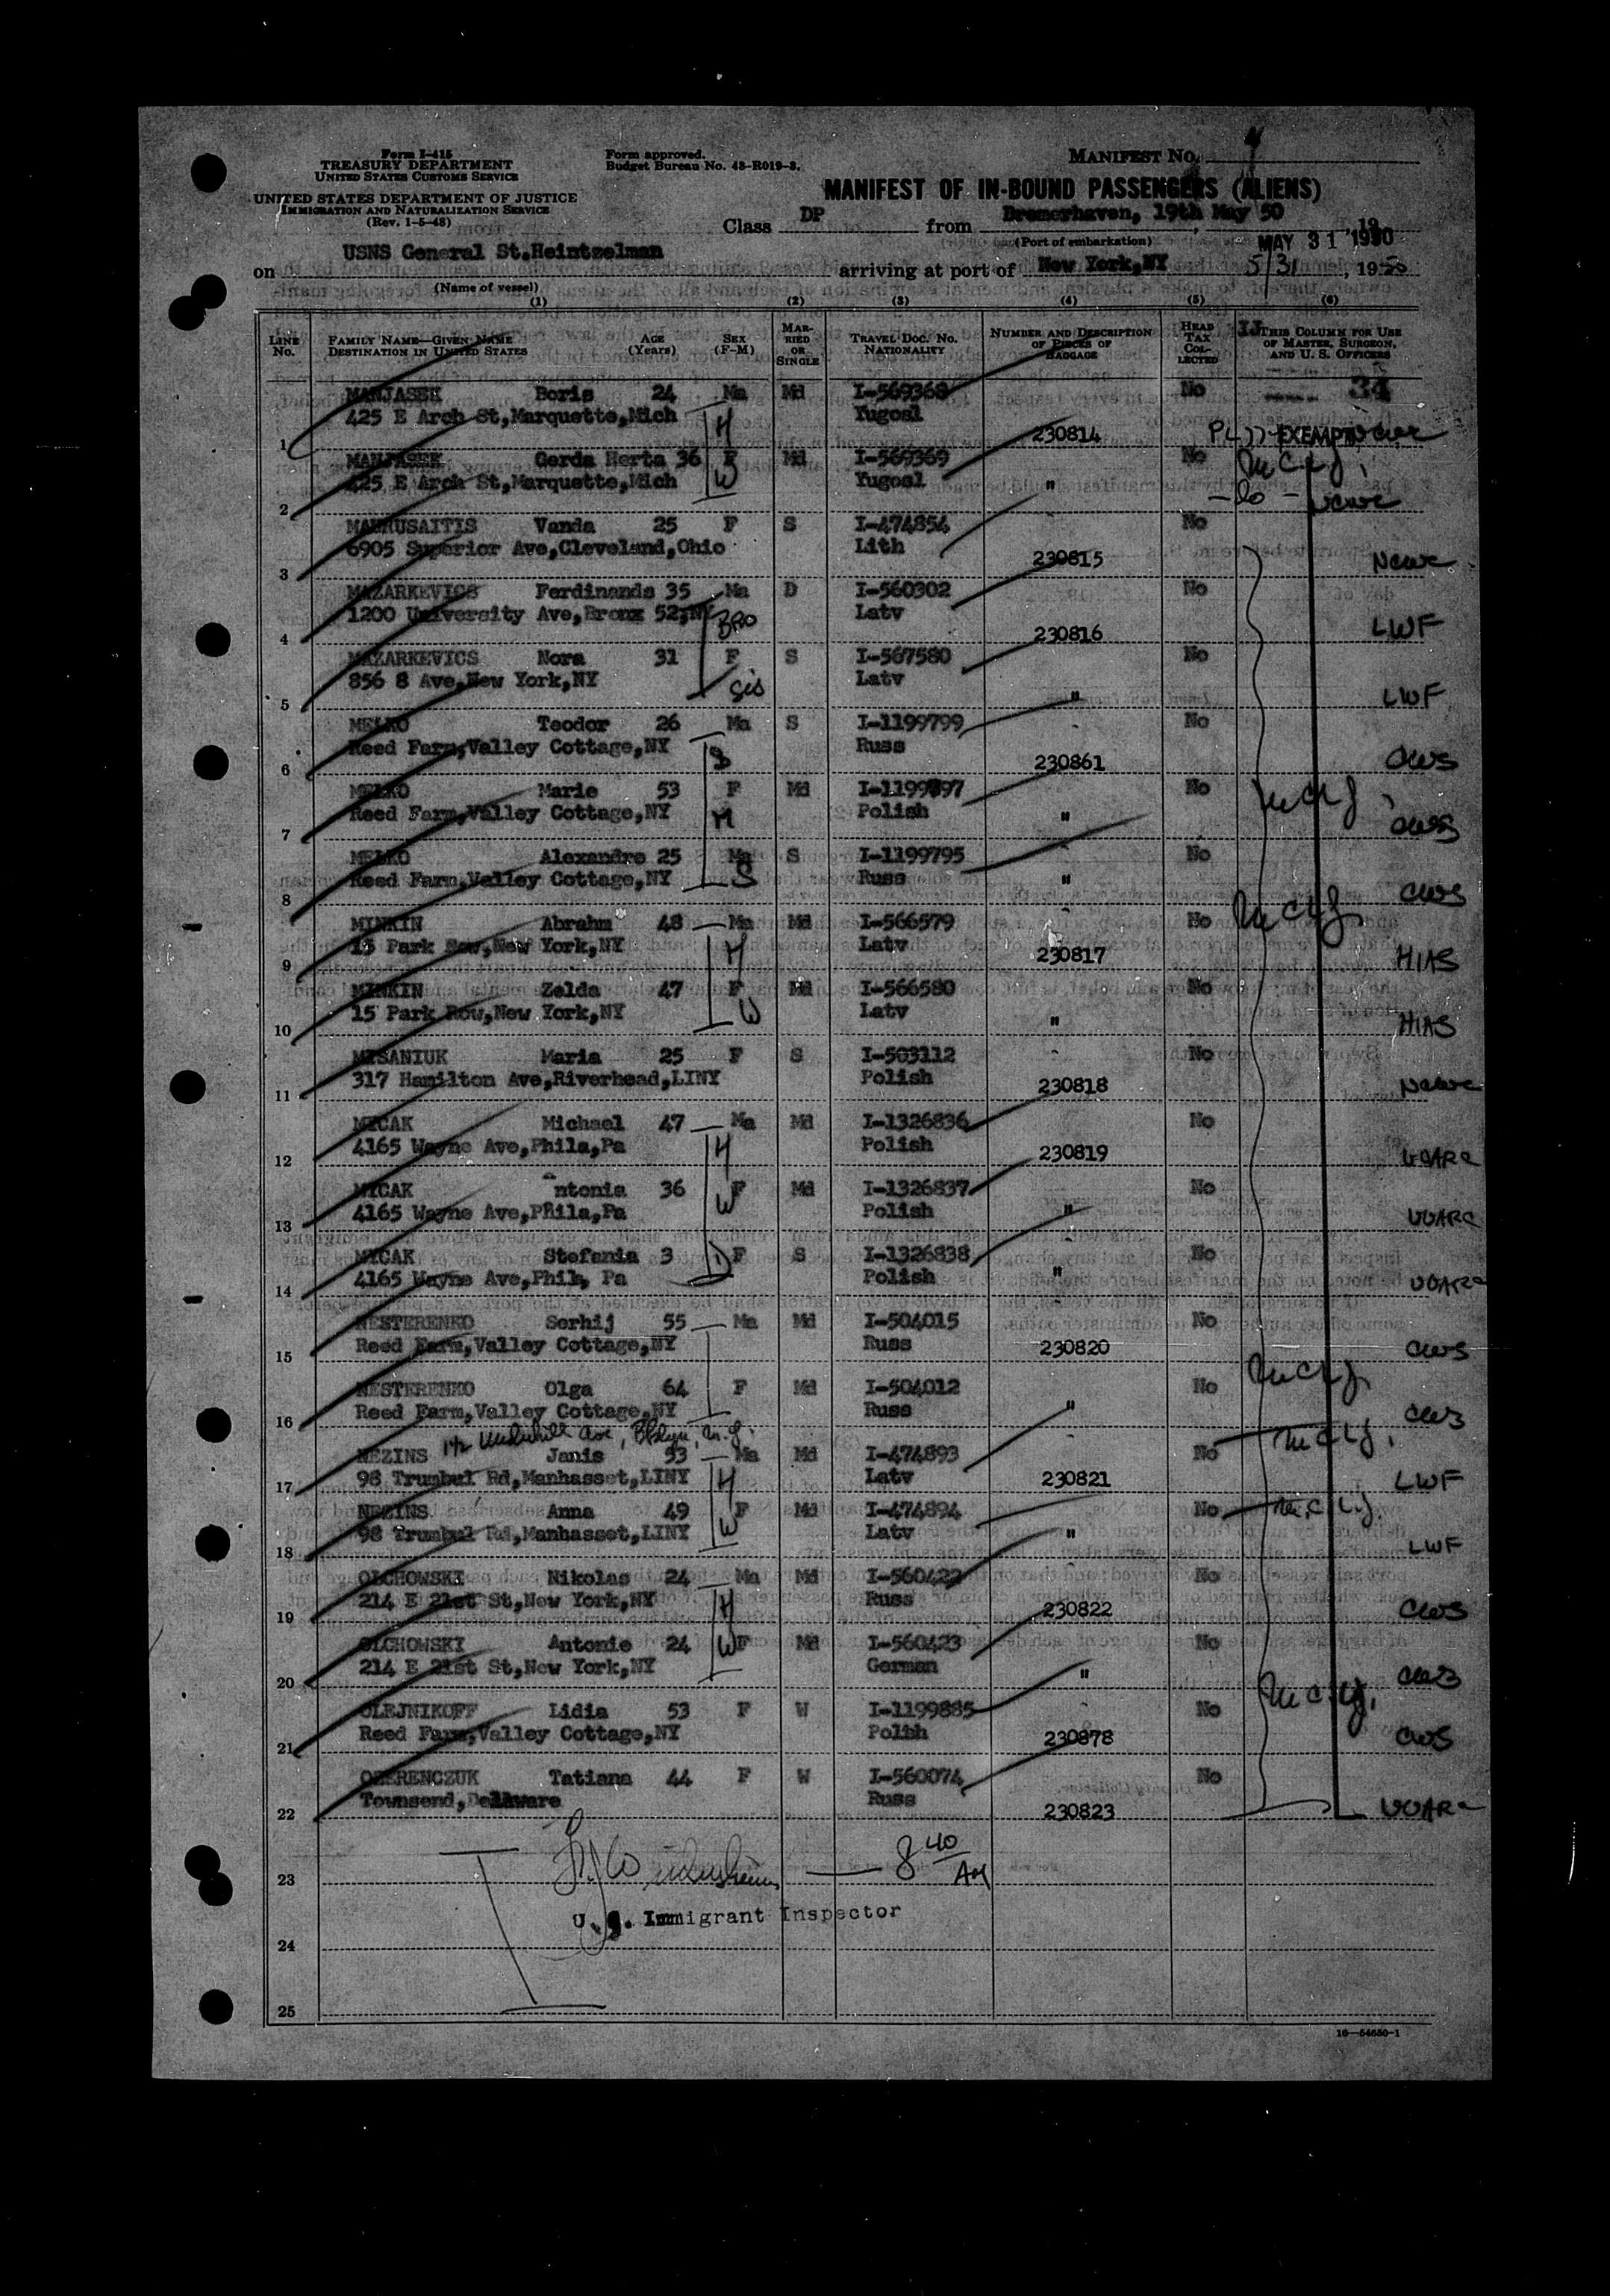 Form I-415
TREASURY DEPARTMENT
UNITED STATES CUSTOMS SERVICE
UNITED STATES DEPARTMENT OF JUSTICE
IMMIGRATION AND NATURALIZATION SERVICE
(Rev. 1-5-48)
Form approved.
Budget Bureau No. 43-R019-3.
MANIFEST NO.
MANIFEST OF IN-BOUND PASSENGERS (ALIENS)
Class DP from Bremerhaven, 19th May 50, 19
(Port of embarkation) MAY 31 1950
on USNS General St.Heintzelman arriving at port of New York,NY 5/31, 1950
(Name of vessel)
(1) (2) (3) (4) (5) (6)
LINE No. FAMILY NAME—GIVEN NAME DESTINATION IN UNITED STATES AGE (Years) SEX (F-M) MARRIED OR SINGLE TRAVEL DOC. NO. NATIONALITY NUMBER AND DESCRIPTION OF PIECES OF BAGGAGE HEAD TAX COLLECTED THIS COLUMN FOR USE OF MASTER, SURGEON, AND U. S. OFFICERS
MANJASEK Boris 24 Ma Md I-569368 No 34
425 E Arch St,Marquette,Mich H Yugosl
1 230814 EXEMPT
MANJASEK Gerda Herta 36 F Md I-569369 No
425 E Arch St,Marquette,Mich W Yugosl "
2
MAURUSAITIS Vanda 25 F S I-474854 No
6905 Superior Ave,Cleveland,Ohio Lith
3 230815 NCWC
MAZARKEVICS Ferdinands 35 Ma D I-560302 No
1200 University Ave,Bronx 52,NY BRO Latv
4 230816 LWF
MAZARKEVICS Nora 31 F S I-567580 No
856 8 Ave,New York,NY Sis Latv
5 " LWF
MELKO Teodor 26 Ma S I-1199799 No
Reed Farm,Valley Cottage,NY Russ
6 230861 CWS
MELKO Marie 53 F Md I-1199797 No
Reed Farm,Valley Cottage,NY M Polish "
7 CWS
MELKO Alexandre 25 Ma S I-1199795 No
Reed Farm,Valley Cottage,NY S Russ "
8 CWS
MINKIN Abrahm 48 Ma Md I-566579 No
15 Park Row,New York,NY H Latv
9 230817 HIAS
MINKIN Zelda 47 F Md I-566580 No
15 Park Row,New York,NY W Latv "
10 HIAS
MISANIUK Maria 25 F S I-503112 No
317 Hamilton Ave,Riverhead,LINY Polish
11 230818 NCWC
MYCAK Michael 47 Ma Md I-1326836 No
4165 Wayne Ave,Phila,Pa H Polish
12 230819 UUARC
MYCAK Antonia 36 F Md I-1326837 No
4165 Wayne Ave,Phila,Pa W Polish "
13 UUARC
MYCAK Stefania 3 D F S I-1326838 No
4165 Wayne Ave,Phil, Pa Polish "
14 UUARC
NESTERENKO Serhij 55 Ma Md I-504015 No
Reed Farm,Valley Cottage,NY Russ
15 230820 CWS
NESTERENKO Olga 64 F Md I-504012 No
Reed Farm,Valley Cottage,NY Russ "
16 CWS
Underhill Ave, Bklyn, N.Y.
NEZINS Janis 53 Ma Md I-474893 No
98 Trumbul Rd,Manhasset,LINY H Latv
17 230821 LWF
NEZINS Anna 49 F Md I-474894 No
98 Trumbul Rd,Manhasset,LINY W Latv "
18 LWF
OLCHOWSKI Nikolas 24 Ma Md I-560422 No
214 E 21st St,New York,NY H Russ
19 230822 CWS
OLCHOWSKI Antonie 24 W F Md I-560423 No
214 E 21st St,New York,NY German "
20 CWS
OLEJNIKOFF Lidia 53 F W I-1199885 No
Reed Farm,Valley Cottage,NY Polsh
21 230878 CWS
OZERENCZUK Tatiana 44 F W I-560074 No
Townsend,Delaware Russ
22 230823 UUARC
23 8 40 AM
U. S. Immigrant Inspector
24
25
16—54650-1